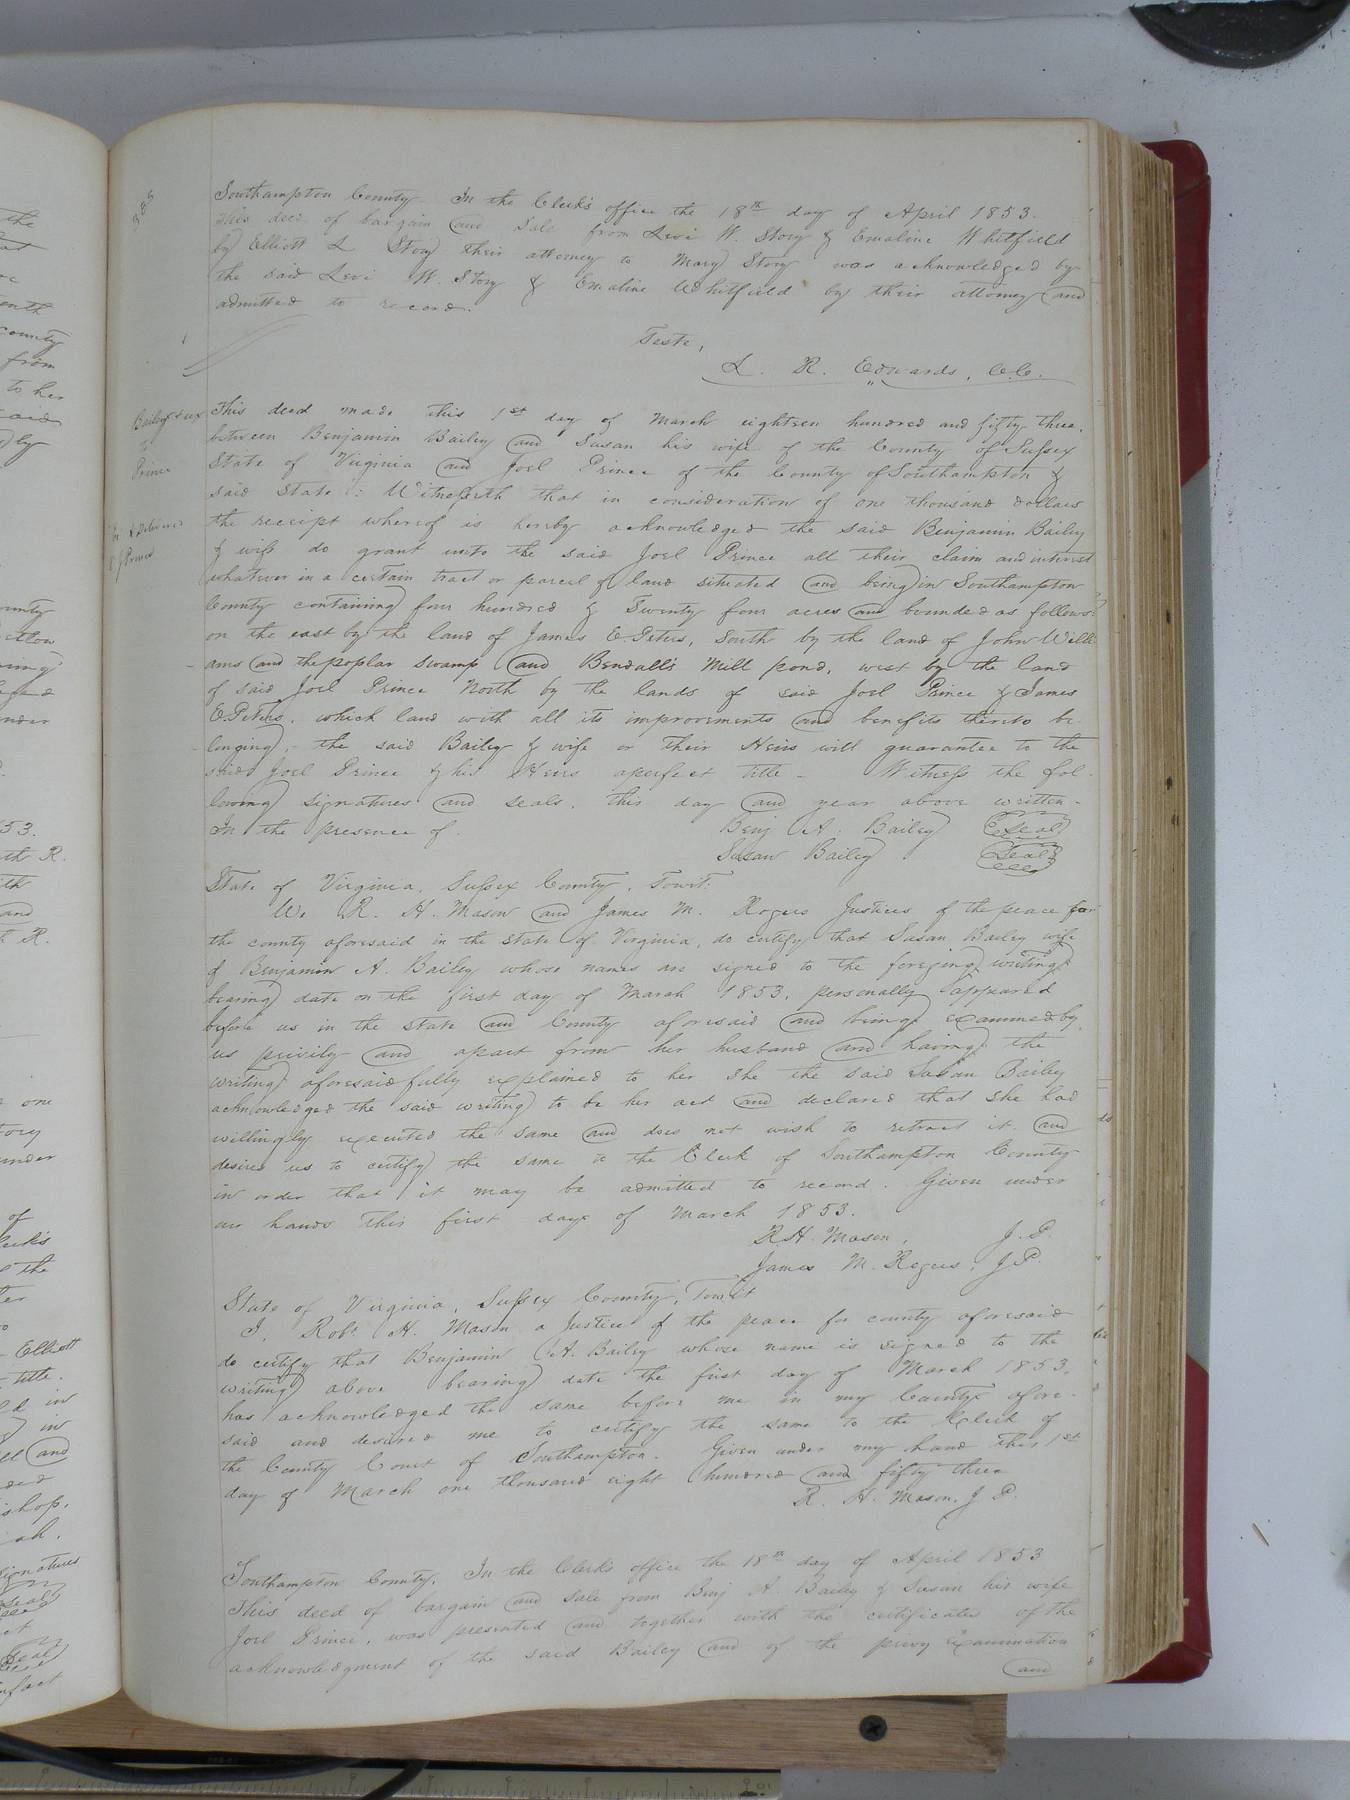 385
Southampton County. In the Clerk's office the 18th day of April 1853.
this deed of bargain and Sale from Levi W. Story & Emaline Whitfield
by Elliott L Story their attorney to Mary Story was acknowledged by
the said Levi W. Story & Emaline Whitfield by their attorney and
admitted to record.
Teste,
L. R. Edwards, C.C.
Bailey & ux
to
Prince
& Delivered
J Prince
This deed made this 1st day of March eighteen hundred and fifty three,
between Benjamin Bailey and Susan his wife of the County of Sussex
State of Virginia and Joel Prince of the County of Southampton &
said State: Witnesseth that in consideration of one thousand dollars
the receipt whereof is hereby acknowledged the said Benjamin Bailey
& wife do grant unto the said Joel Prince all their claim and interest
whatever in a certain tract or parcel of land situated and being in Southampton
County containing four hundred & Twenty four acres and bounded as follows:
on the east by the land of James E. Peters, South by the land of John Will
ams and the poplar swamp and Bendall's Mill pond, west by the land
of said Joel Prince North by the lands of said Joel Prince & James
E. Peters, which land with all its improvements and benefits thereto be
longing, the said Bailey & wife or their Heirs will guarantee to the
said Joel Prince & his Heirs a perfect title - Witness the fol-
lowing signatures and seals, this day and year above written -
In the presence of. Benj A. Bailey Seal
Susan Bailey Seal
State of Virginia, Sussex County, Towit:
We R. H. Mason and James M. Rogers Justices of the peace for
the county aforesaid in the state of Virginia, do certify that Susan Bailey wife
of Benjamin A. Bailey whose names are signed to the foregoing writing
bearing date on the first day of March 1853, personally appeared
before us in the state and County aforesaid and being examined by
us privily and apart from her husband and having the
writing aforesaid fully explained to her she the said Susan Bailey
acknowledged the said writing to be her act and declared that she had
willingly executed the same and does not wish to retract it and
desires us to certify the same to the Clerk of Southampton County
in order that it may be admitted to record. Given under
our hands this first day of March 1853.
R. H. Mason, J.P.
James M. Rogers, J.P.
State of Virginia, Sussex County, Towit
I, Robt H. Mason a Justice of the peace for county aforesaid
do certify that Benjamin A. Bailey whose name is signed to the
writing above bearing date the first day of March 1853,
has acknowledged the same before me in my County afore-
said and desired me to certify the same to the Clerk of
the County Court of Southampton. Given under my hand this 1st
day of March one thousand eight hundred and fifty three
R. H. Mason, J P.
Southampton County. In the Clerk's office the 18th day of April 1853
This deed of bargain and sale from Benj A. Bailey & Susan his wife
Joel Prince, was presented and together with the certificates of the
acknowledgment of the said Bailey and of the privy examination
and